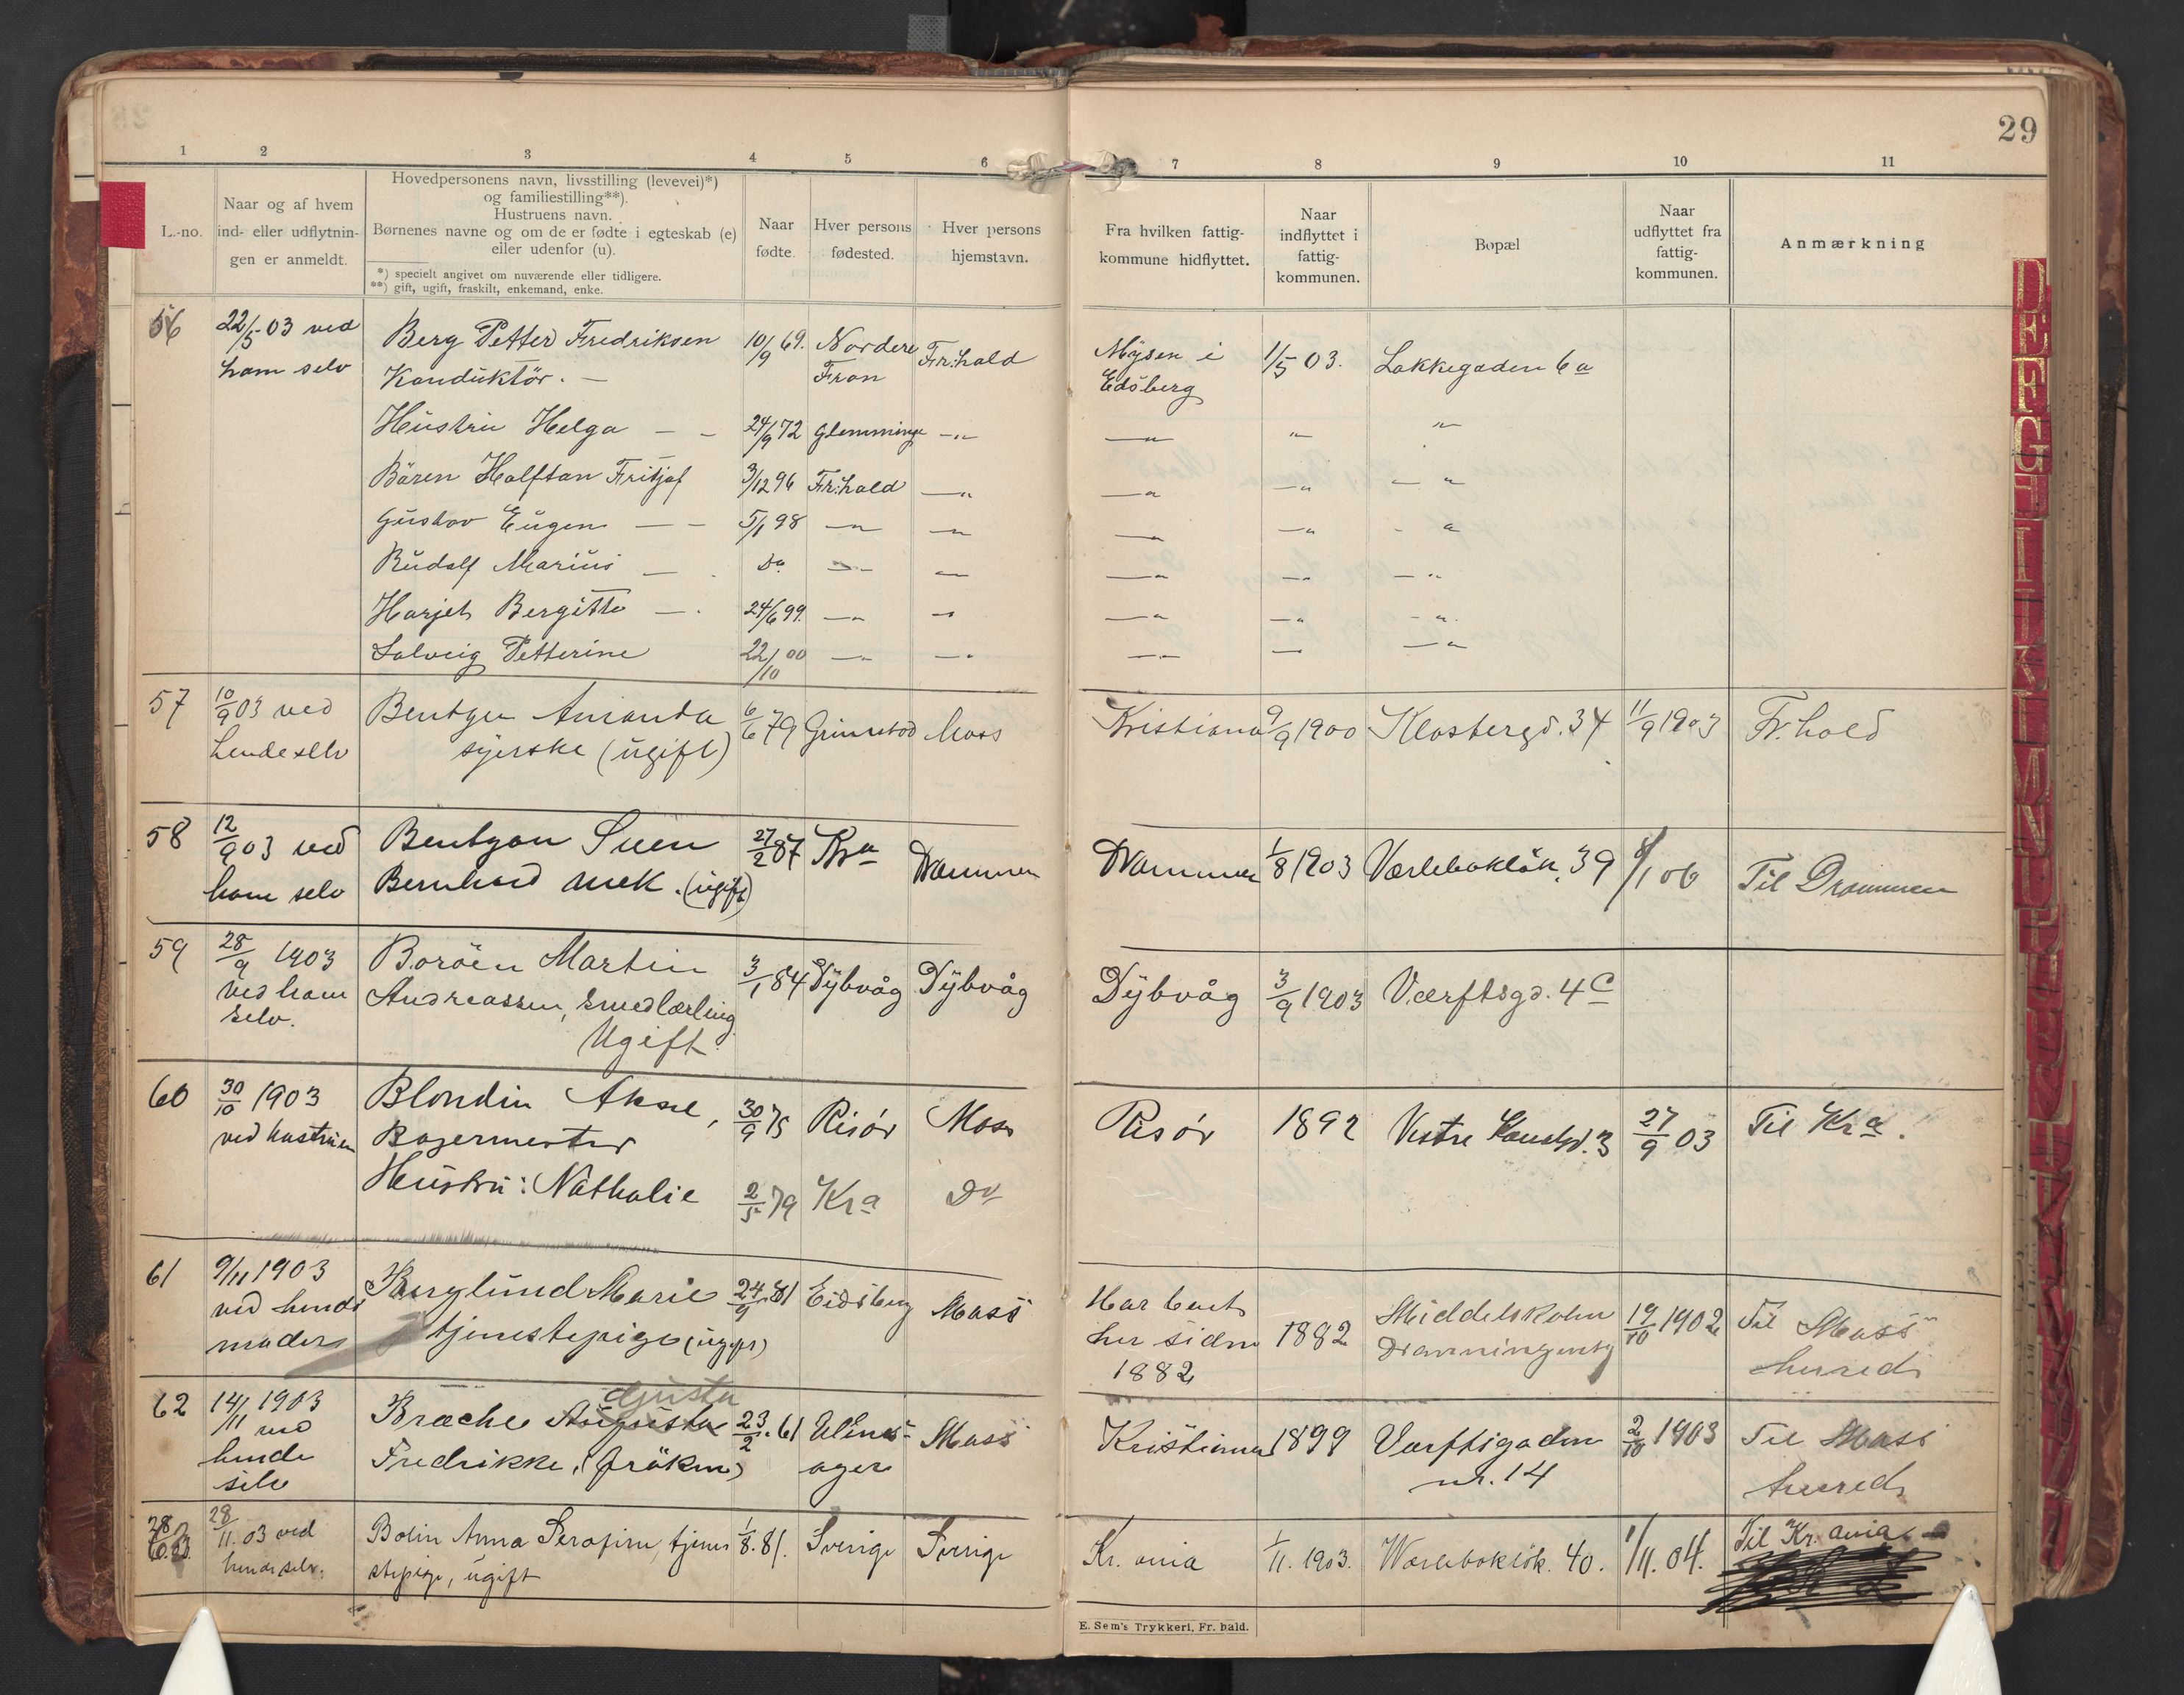 29
1 2 3 4 5 6 7 8 9 10 11
L.-no.
Naar og af hvem
ind- eller udflytnin-
gen er anmeldt.
Hovedpersonens navn, livsstilling (levevei)*)
og familiestilling**).
Hustruens navn.
Børnenes navne og om de er fødte i egteskab (e)
eller udenfor (u).
*) specielt angivet om nuværende eller tidligere.
**) gift, ugift, fraskilt, enkemand, enke.
Naar
fødte.
Hver persons
fødested.
Hver persons
hjemstavn.
Fra hvilken fattig-
kommune hidflyttet.
Naar
indflyttet i
fattig-
kommunen.
Bopæl
Naar
udflyttet fra
fattig-
kommunen.
Anmærkning
56 22/5 03 ved Berg Petter Fredriksen 10/9 69. Nordere Fr:hald Mysen i 1/5 03. Lakkegaden 6a
ham selv Konduktör. — Fron Edsberg
Hustru Helga — — 24/9 72 Glemminge —„— —„— „ „
Bören Halftan Fritjof 3/12 96 Fr:hald —„ —„ —„ — „
Gustav Eugen — — 5/1 98 —„ —„ —„ —„ - „
Rudolf Marius — Do —„— —„ —„ —„ —„
Harjet Bergitte — 24/6 99. —„ —„ —„ —„ -„
Solveig Petterine 22/10 00 —„ —„ —„ — —„
57 10/9 03 ved Bentzen Amanda 6/6 79 Grimstad Moss Kristiania 9/9 1900 Klostergd. 34 11/9 1903 Fr.hald
hende selv syerske (ugift)
58 12/9 03 ved Bentzon Sven 27/2 87 Kra Drammen Drammen 1/8 1903 Værlebokløk. 39 8/1 06 Til Drammen
ham selv Bernhard mek. (ugift)
59 28/9 1903 Boröen Martin 3/1 84 Dybvåg Dybvåg Dybvåg 3/9 1903 Værftsgd. 4c
ved ham Andreassen, smedlærling
selv. Ugift.
60 30/10 1903 Blondin Aksel, 30/9 75 Risör Moss Risör 1892 Vestre Kanalgd. 3 27/9 03 Til Kra.
ved hustruen Bagermester
Hustru: Nathalie 2/5 79 Kra Do
61 9/11 1903 Berglund Marie 24/9 81 Eidsberg Moss Har boet 1882 Middelskolen 19/10 1902 Til Moss
ved hendes tjenestepige (ugift) her siden Dronningensg herred
moder 1882
djusta
62 14/11 1903 Brache Augusta 23/2 61 Ulens- Moss Kristiania 1899 Værftsgaden 2/10 1903 Til Moss
ved Fredrikke, (fröken) ager nr. 14 herred
hende
selv
28/11. 03 ved Bolin Anna Serafine, tjene- 1/8. 81. Sverige Sverige Kr.ania 1/11. 1903. Værlebokløk. 40. 1/11. 04. Til Kr.ania
hende selv. stepige, ugift
E. Sem's Trykkeri, Fr. hald.